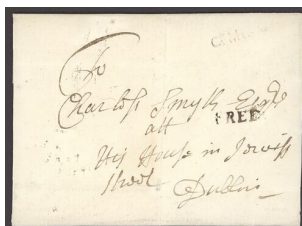 To
Charles Smyth Esqr
att
FREE
His House in Jervis
Street
Dublin